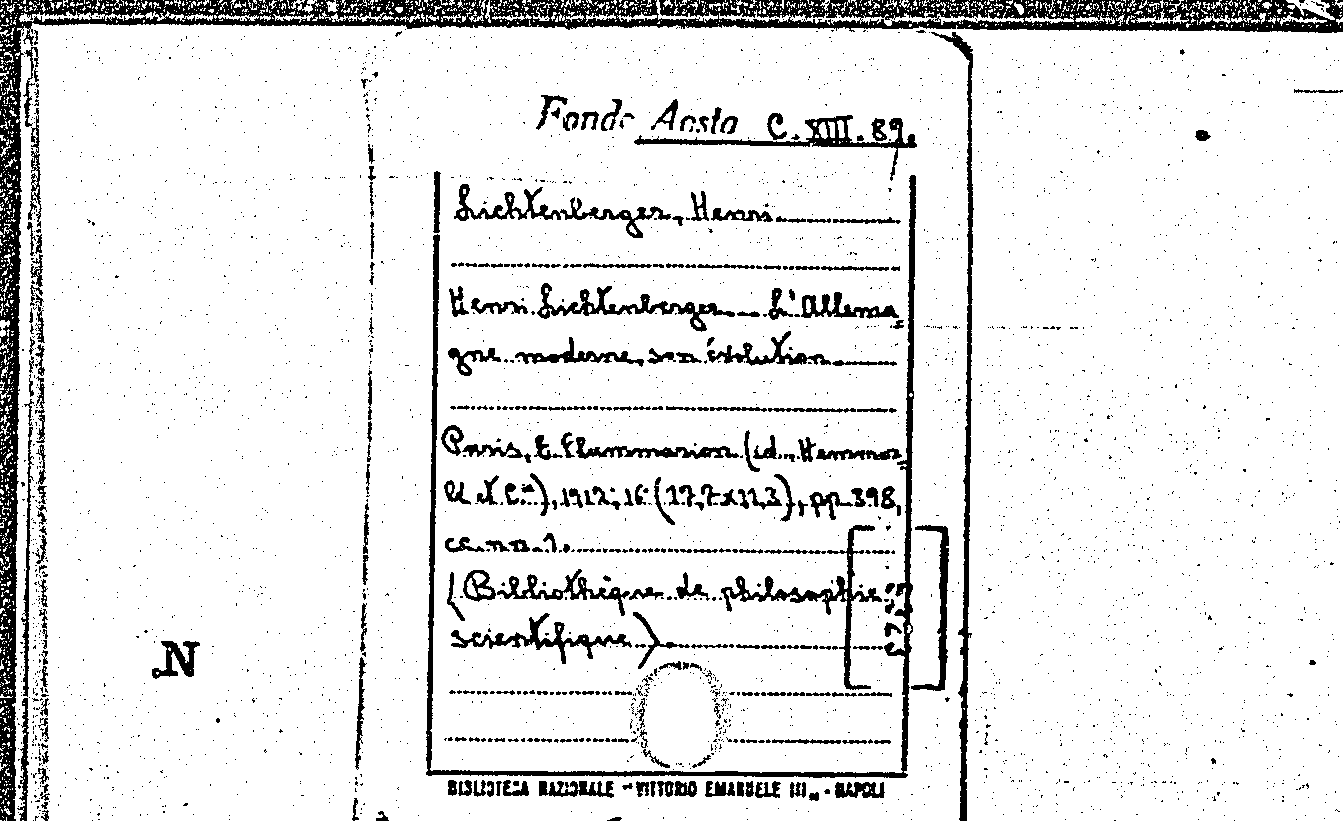 Fondo Aosta C. XIII. 89.
Lichtenberger, Henri
Henri Lichtenberger. L'Allema=
gne moderne, son évolution.
Paris, E. Flammarion (id., Hemmer=
lé et C.ie), 1912; 16° (17,7x11,3), pp. 398,
cc. nn. 1.
(Bibliothèque de philosophie
scientifique).
N
BIBLIOTECA NAZIONALE "VITTORIO EMANUELE III„ - NAPOLI